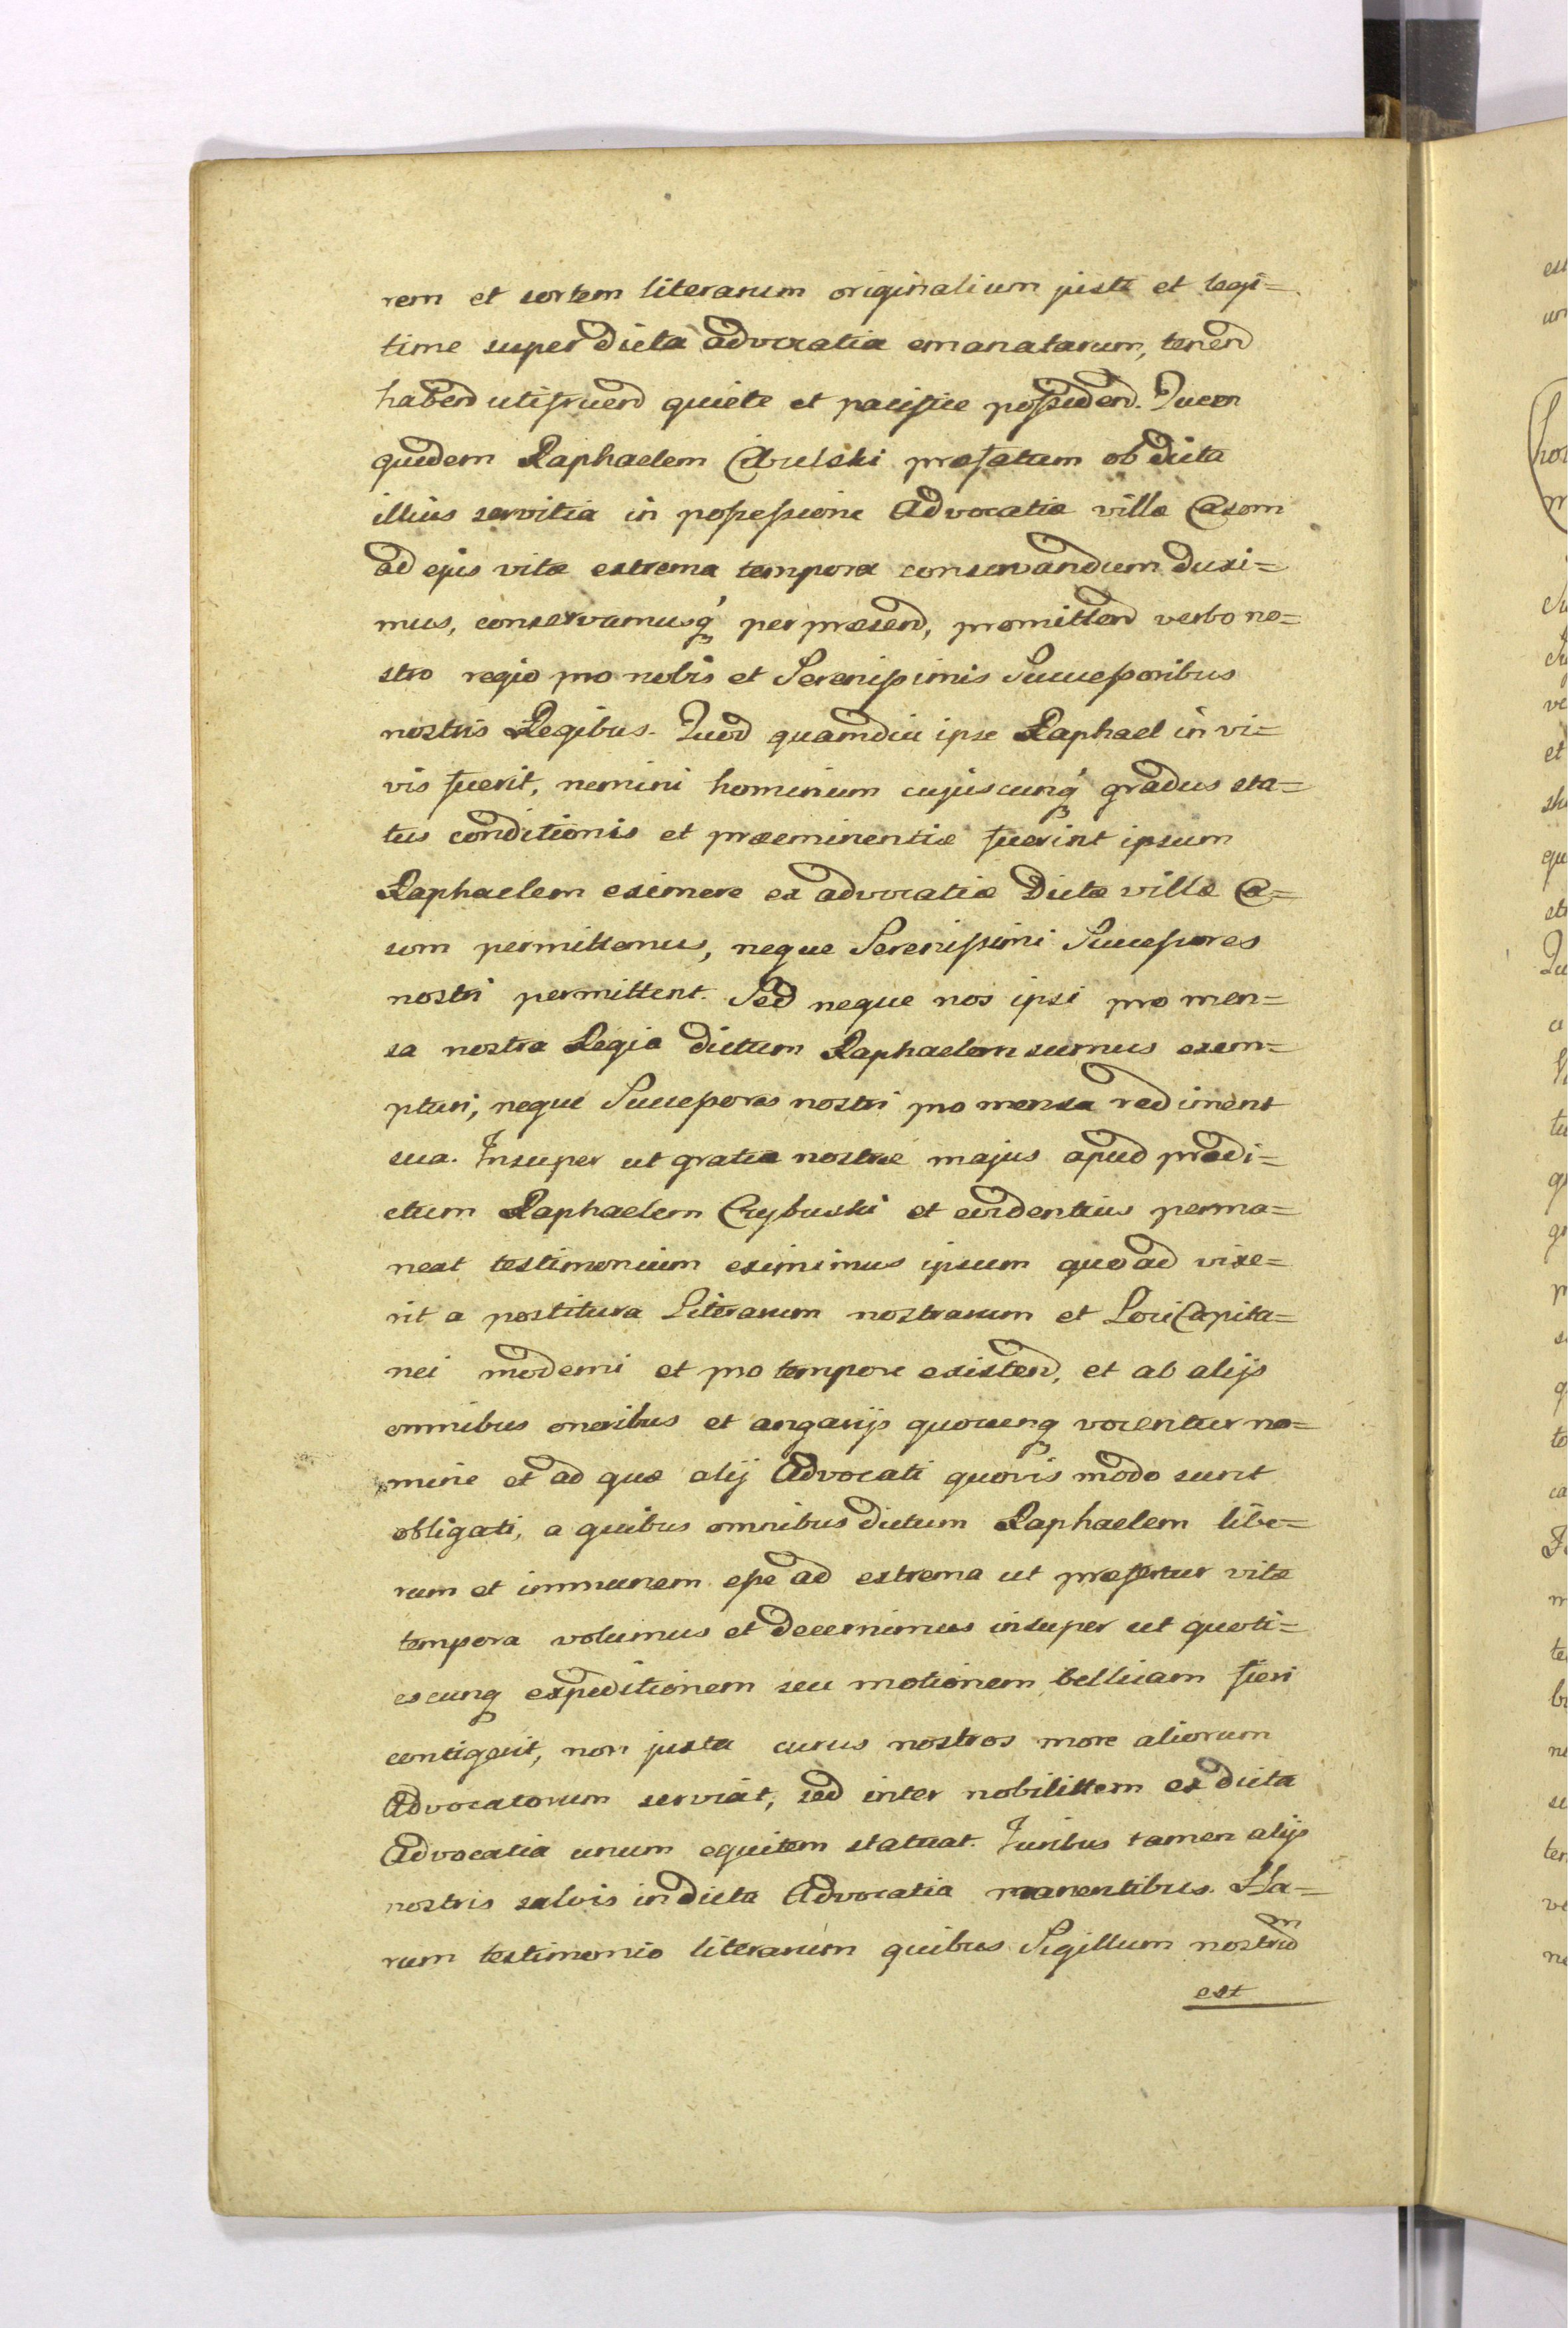 rem et sortem literarum originalium juste et legi=
time super dicta advocatia emanatarum, tenend
habend utifruend quiete et pacifice possidend. Quem
quidem Raphaelem præfatum ob dicta
illius servitia in possessione Advocatiæ villæ Casom
ad ejus vitæ extrema tempora conservandum duxi=
mus, conservamusq per præsend, promittend verbo no=
stro regio pro nobis et Serenissimis Successoribus
nostris Regibus. Quod quamdiu ipse Raphael in vi=
vis fuerit, nemini hominum cujuscunq gradus sta=
tus conditionis et præeminentiæ fuerint ipsum
Raphaelem eximere ex advocatiæ dictæ villæ Ca=
som permittemus, neque Serenissimi Successores
nostri permittent. Sed neque nos ipsi pro men=
sa nostra Regia dictum Raphaelem sumus exem=
pturi, neque Successores nostri pro mensa rediment
sua. Insuper ut gratiæ nostræ majus apud prædi=
ctum Raphaelem Crybuski et evidentius perma=
neat testimonium eximimus ipsum quoad vixe=
rit a postitura Literarum nostrarum et Loci Capita=
nei moderni et pro tempore existend, et ab alijs
omnibus oneribus et angarijs quocunq vocentur no=
mine et ad quæ alij Advocati quovis modo sunt
obligati, a quibus omnibus dictum Raphaelem libe=
rum et immunem esse ad extrema ut præfertur vitæ
tempora volumus et decernimus insuper ut quoti=
escunq expeditionem seu motionem bellicam fieri
contigerit, non juxta currus nostros more aliorum
Advocatorum serviat, sed inter nobilittem ex dicta
Advocatia unum equitem statuat. Juribus tamen alijs
nostris salvis in dicta Advocatia manentibus. Ha=
rum testimonio literarum quibus Sigillum nostrum
est